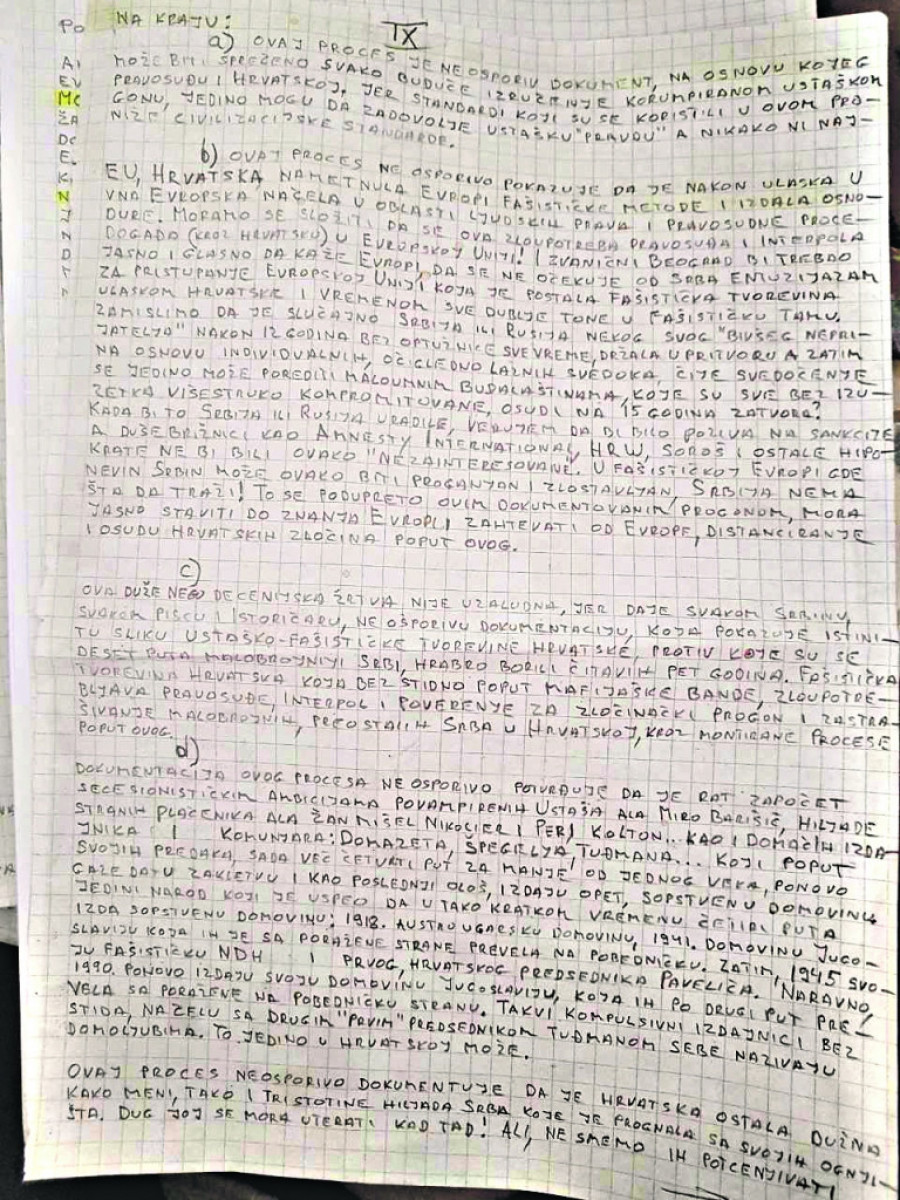 IX
NA KRAJU:
a) OVAJ PROCES JE NEOSPORIV DOKUMENT, NA OSNOVU KOJEG
MOŽE BITI SPREČENO SVAKO BUDUĆE IZRUČENJE KORUMPIRANOM USTAŠKOM
PRAVOSUĐU I HRVATSKOJ. JER STANDARDI KOJI SU SE KORISTILI U OVOM PRO-
GONU, JEDINO MOGU DA ZADOVOLJE USTAŠKU "PRAVDU" A NIKAKO NI NAJ-
NIŽE CIVILIZACIJSKE STANDARDE.
b) OVAJ PROCES NE OSPORIVO POKAZUJE DA JE NAKON ULASKA U
EU, HRVATSKA NAMETNULA EVROPI FAŠISTIČKE METODE I IZDALA OSNO-
VNA EVROPSKA NAČELA U OBLASTI LJUDSKIH PRAVA I PRAVOSUDNE PROCE-
DURE. MORAMO SE SLOŽITI, DA SE OVA ZLOUPOTREBA PRAVOSUĐA I INTERPOLA
DOGAĐA (KROZ HRVATSKU) U EVROPSKOJ UNIJI! IZVANIČNI BEOGRAD BI TREBAO
JASNO I GLASNO DA KAŽE EVROPI, DA SE NE OČEKUJE OD SRBA ENTUZIJAZAM
ZA PRISTUPANJE EVROPSKOJ UNIJI KOJA JE POSTALA FAŠISTIČKA TVOREVINA
ULASKOM HRVATSKE I VREMENOM SVE DUBLJE TONE U FAŠISTIČKU TAMU.
ZAMISLIMO DA JE SLUČAJNO SRBIJA ILI RUSIJA NEKOG SVOG "BIVŠEG NEPRI-
JATELJA" NAKON 12 GODINA BEZ OPTUŽNICE SVE VREME, DRŽALA U PRITVORU A ZATIM
NA OSNOVU INDIVIDUALNIH, OČIGLEDNO LAŽNIH SVEDOKA, ČIJE SVEDOČENJE
SE JEDINO MOŽE POREDITI MALOUMNIM BUDALAŠTINAMA, KOJE SU SVE BEZ IZU-
ZETKA VIŠESTRUKO KOMPROMITOVANE, OSUDI NA 15 GODINA ZATVORA?
KADA BI TO SRBIJA ILI RUSIJA URADILE, VERUJEM DA BI BILO POZIVA NA SANKCIJE
A DUŠEBRIŽNICI KAO AMNESTY INTERNATIONAL, HRW, SOROŠ I OSTALE HIPO-
KRATE NE BI BILI OVAKO "NEZAINTERESOVANE". U FAŠISTIČKOJ EVROPI GDE
NEVIN SRBIN MOŽE OVAKO BITI PROGANJAN I ZLOSTAVLJAN, SRBIJA NEMA
ŠTA DA TRAŽI! TO SE PODUPRETO OVIM DOKUMENTOVANIM PROGONOM, MORA
JASNO STAVITI DO ZNANJA EVROPI I ZAHTEVATI OD EVROPE, DISTANCIRANJE
I OSUDU HRVATSKIH ZLOČINA POPUT OVOG.
c)
OVA DUŽE NEGO DECENIJSKA ŽRTVA NIJE UZALUDNA, JER DAJE SVAKOM SRBINU,
SVAKOM PISCU I ISTORIČARU, NE OSPORIVU DOKUMENTACIJU, KOJA POKAZUJE ISTINI-
TU SLIKU USTAŠKO-FAŠISTIČKE TVOREVINE HRVATSKE, PROTIV KOJE SU SE
DESET PUTA MALOBROJNIJI SRBI, HRABRO BORILI ČITAVIH PET GODINA. FAŠISTIČKA
TVOREVINA HRVATSKA KOJA BEZ STIDNO POPUT MAFIJAŠKE BANDE, ZLOUPOTRE-
BLJAVA PRAVOSUĐE, INTERPOL I POVERENJE ZA ZLOČINAČKI PROGON I ZASTRA-
ŠIVANJE MALOBROJNIH, PREOSTALIH SRBA U HRVATSKOJ, KROZ MONTIRANE PROCESE
POPUT OVOG.
d)
DOKUMENTACIJA OVOG PROCESA NE OSPORIVO POTVRĐUJE DA JE RAT ZAPOČET
SECESIONISTIČKIM AMBICIJAMA POVAMPIRENIH USTAŠA ALA MIRO BARIŠIĆ, HILJADE
STRANIH PLAĆENIKA ALA ŽAN MIŠEL NIKOLIER I PERI KOLTON... KAO I DOMAĆIH IZDA-
JNIKA I KOMUNJARA: DOMAZETA, ŠPEGELJA, TUĐMANA... KOJI POPUT
SVOJIH PREDAKA, SADA VEĆ ČETVRTI PUT ZA MANJE OD JEDNOG VEKA, PONOVO
GAZE DATU ZAKLETVU I KAO POSLEDNJI OLOŠ, IZDAJU OPET, SOPSTVENU DOMOVINU.
JEDINI NAROD KOJI JE USPEO DA U TAKO KRATKOM VREMENU ČETIRI PUTA
IZDA SOPSTVENU DOMOVINU: 1918. AUSTROUGARSKU DOMOVINU, 1941. DOMOVINU JUGO-
SLAVIJU KOJA IH JE SA PORAŽENE STRANE PREVELA NA POBEDNIČKU. ZATIM, 1945 SVO-
JU FAŠISTIČKU NDH I PRVOG, HRVATSKOG PREDSEDNIKA PAVELIĆA. NARAVNO,
1990. PONOVO IZDAJU SVOJU DOMOVINU JUGOSLAVIJU, KOJA IH PO DRUGI PUT PRE-
VELA SA PORAŽENE NA POBEDNIČKU STRANU. TAKVI KOMPULSIVNI IZDAJNICI BEZ
STIDA, NA ČELU SA DRUGIM "PRVIM" PREDSEDNIKOM TUĐMANOM SEBE NAZIVAJU
DOMOLJUBIMA. TO JEDINO U HRVATSKOJ MOŽE.
OVAJ PROCES NEOSPORIVO DOKUMENTUJE DA JE HRVATSKA OSTALA DUŽNA
KAKO MENI, TAKO I TRISTOTINE HILJADA SRBA KOJE JE PROGNALA SA SVOJIH OGNJI-
ŠTA. DUG JOJ SE MORA UTERATI KAD TAD! ALI, NE SMEMO IH POTCENJIVATI